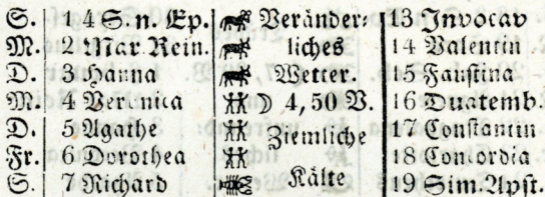 S. 1 4 S. n. Ep. Veränder- 13 Invocav
M. 2 Mar. Rein. liches 14 Valentin
D. 3 Hanna Wetter. 15 Faustina
M. 4 Veronica ☽ 4,50 V. 16 Quatemb.
D. 5 Agathe Ziemliche 17 Constantin
Fr. 6 Dorothea 18 Concordia
S. 7 Richard Kälte 19 Sim. Apst.